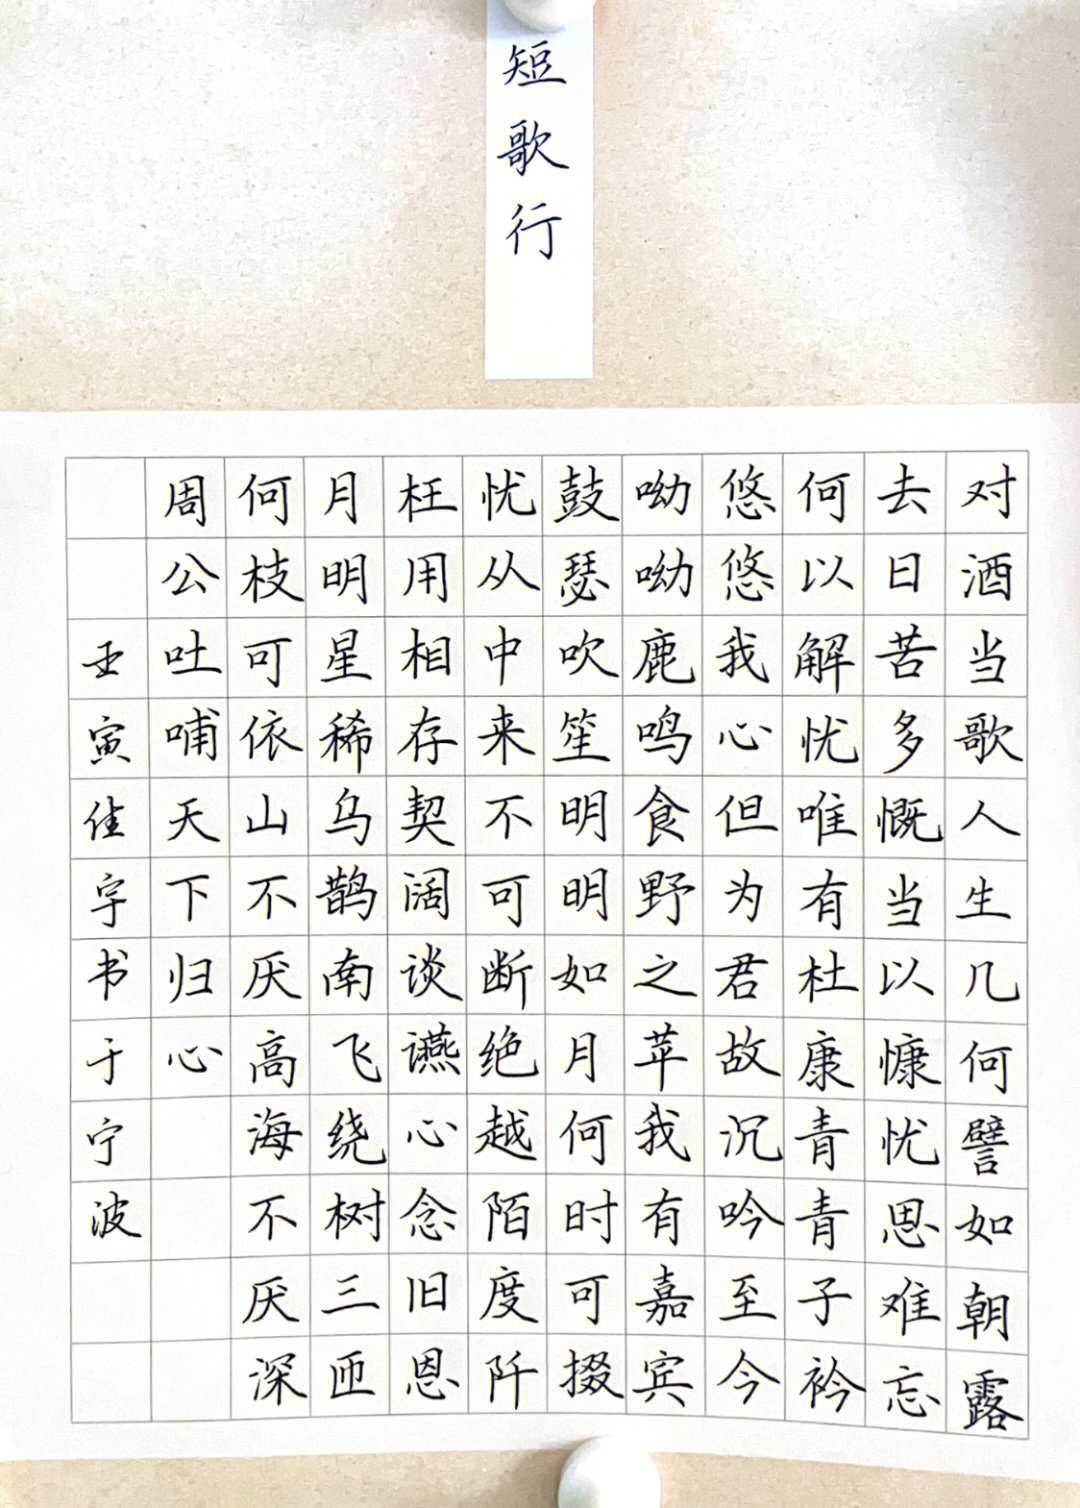 短歌行
对酒当歌人生几何譬如朝露
去日苦多慨当以慷忧思难忘
何以解忧唯有杜康青青子衿
悠悠我心但为君故沉吟至今
呦呦鹿鸣食野之苹我有嘉宾
鼓瑟吹笙明明如月何时可掇
忧从中来不可断绝越陌度阡
枉用相存契阔谈䜩心念旧恩
月明星稀乌鹊南飞绕树三匝
何枝可依山不厌高海不厌深
周公吐哺天下归心
壬寅佳宇书于宁波